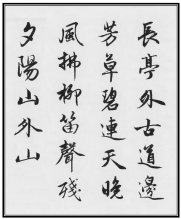 長亭外古道邊
芳草碧連天晚
風拂柳笛聲殘
夕陽山外山